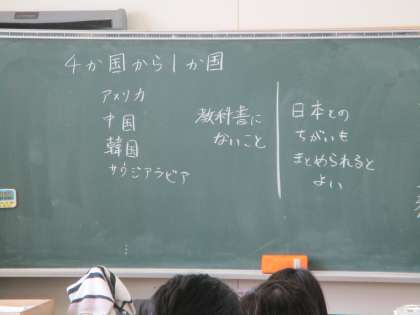 4か国から1か国
アメリカ
中国
韓国
サウジアラビア
教科書に
ないこと
日本との
ちがいも
まとめられると
よい